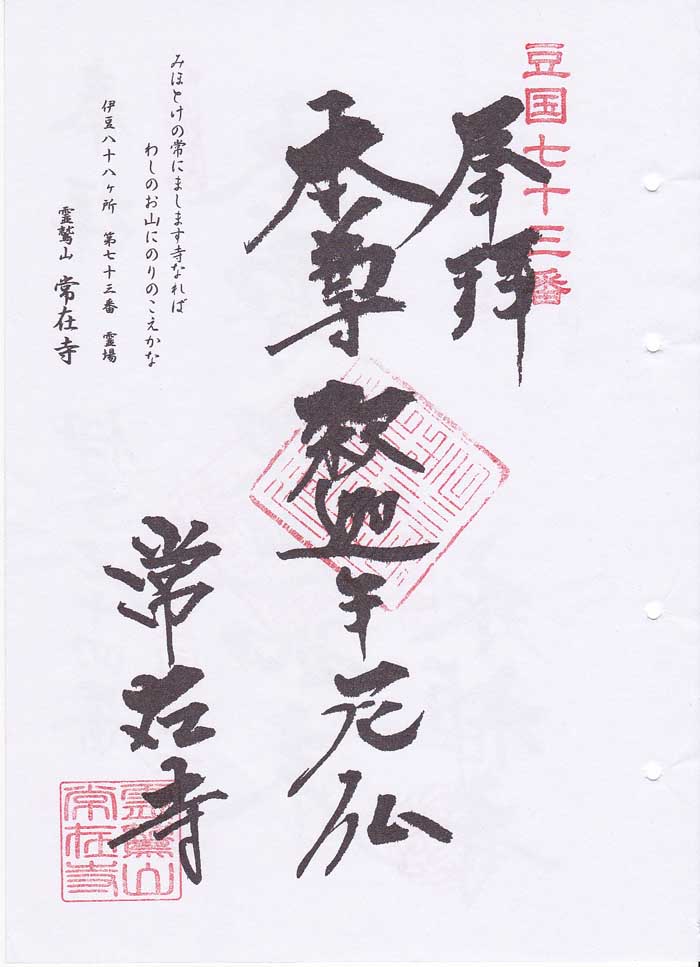 豆国七十三番
奉拝
本尊
釈迦牟尼仏
常在寺
みほとけの常にまします寺なれば
わしのお山にのりのこえかな
伊豆八十八ヶ所 第七十三番 霊場
霊鷲山 常在寺
霊鷲山
常在寺